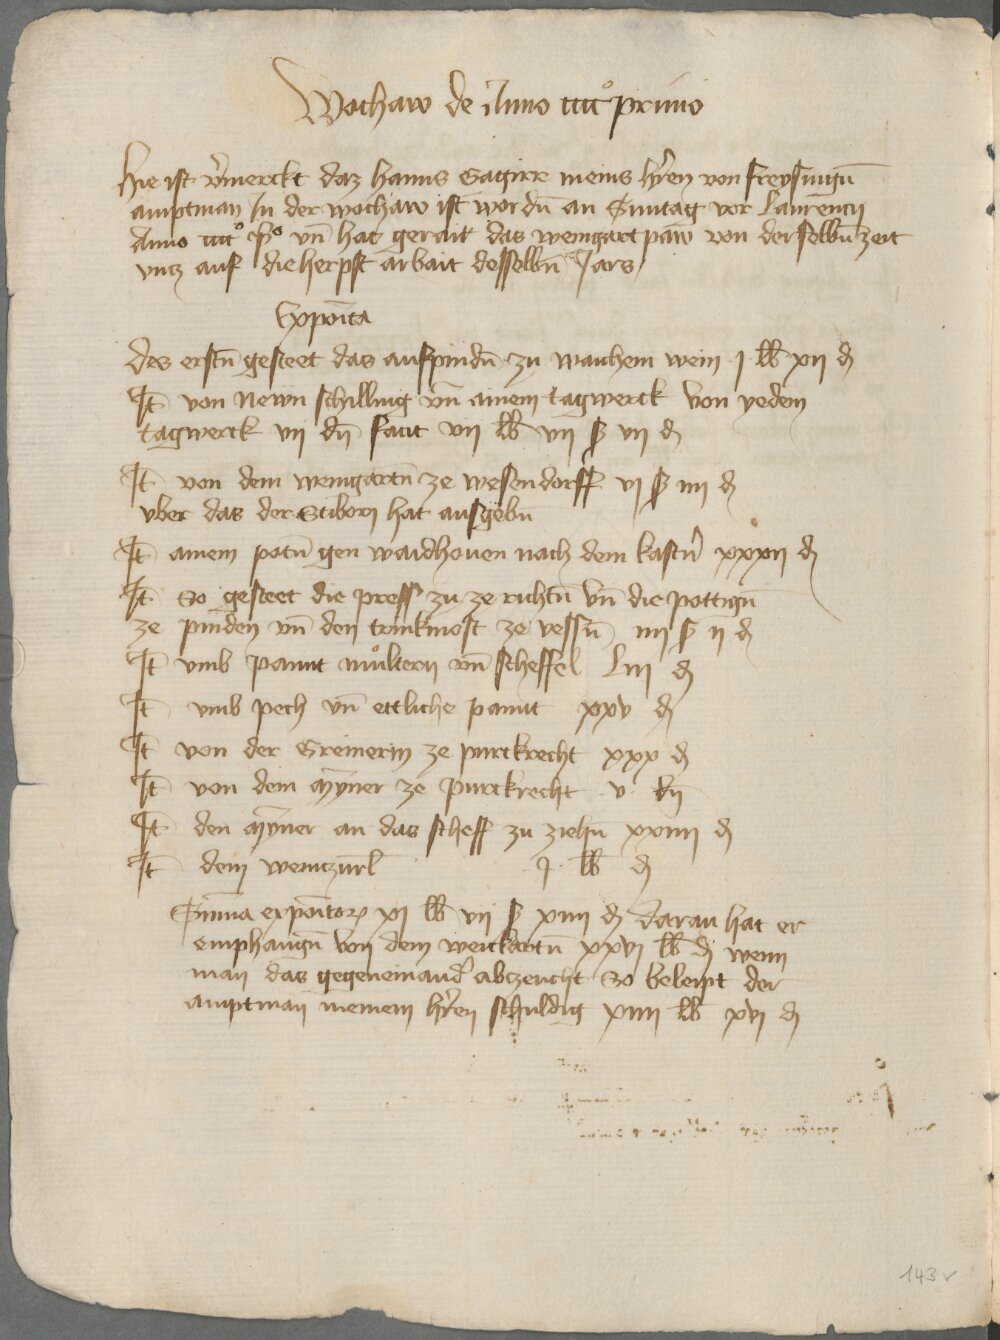 Wochaw de Anno cccc° primo
Hie ist v͛merckt daz Hanns Gagirre meins h͛ren von freysingn̄
amptman In der wochaw ist wordn̄ an Suntag vor Laurencij
Anno cccc° p̄° vn̄ hat gerait das weingartpaw von derselbn̄ zeit
vntz auf die herpst arbait desselbn̄ Jars
Expoīta
des erstn̄ gesteet das aufpindn̄ zu wanhem wein j lb xij d
It̄ von Newn schilling vn̄ ainem tagwerck von yedem
tagwerck vij dn̄ facit vij lb vij ß vij d
It̄ von dem weingartn̄ ze wesendorff vj ß iiij d
vber das der Stibory hat ausgebn̄
It̄ ainem potn̄ gen waidhouen nach dem kastn͛ xxxij d
It̄ So gesteet die press zu ze richtn̄ vn̄ die pottign̄
ze pinden vn̄ den trinkmost ze vessn̄ iiij ß ij d
It̄ vmb pannt můltern vn̄ scheffel Liij d
It̄ vmb pech vn̄ ettliche pannt xxv d
It̄ von der Greinerin ze purckrecht xxx d
It̄ von dem ayner ze purckrecht v dn̄
It̄ den ayner an das scheff zu ziehn̄ xxiiij d
It̄ dem weintzurl j lb d
Sum̄a expoītoꝝ xj lb vij ß xiiij d daran hat er
emphangn̄ von dem weickartn̄ xxvj lb d wenn
man das gegeneinand͛ abczeucht So beleipt der
amptman meinem h͛ren schuldig xiiij lb xvj d
143v